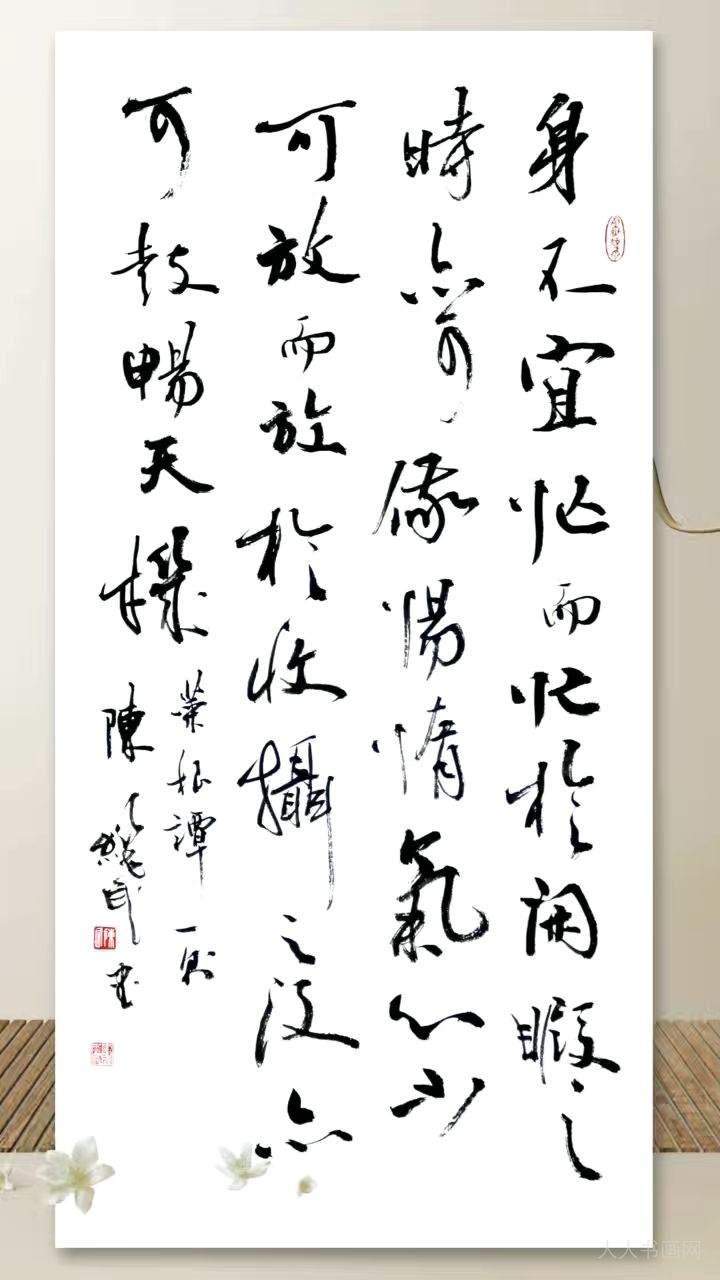 身不宜忙而忙於閑暇之
時亦可儆惕惰氣心不
可放而放於收攝之後亦
可鼓暢天機
菜根譚一則
陳 民书
人人书画网